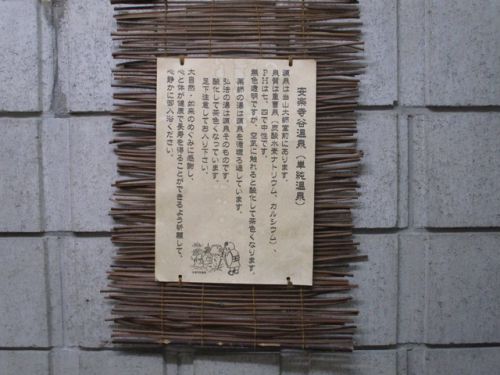 安楽寺谷温泉（単純温泉）
源泉は当山大師堂前にあります。
泉質は重曹泉（炭酸水素ナトリウム、カルシウム）、
PHは七．四で中性です。
無色透明ですが、空気に触れると酸化して茶色くなります。
薬師の湯は源泉を循環ろ過しています。
弘法の湯は源泉そのものです。
酸化して茶色くなっています。
足下注意してお入り下さい。
大自然・如来のめぐみに感謝し、
心と体が健康で長寿を得ることができるよう祈願して、
心静かに御入浴ください。